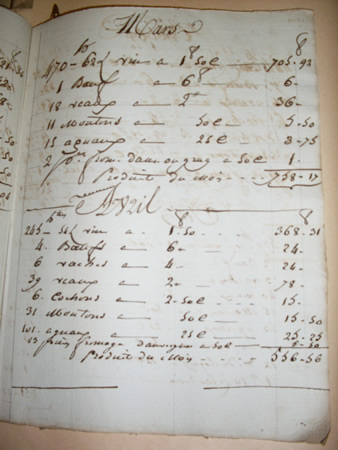 Mars
470-62 l vin a 1 50c 705-93
1 Bœuf a 6 6-
18 veaux a 2 36-
11 Moutons 50c 5-50
15 agneaux a 25c 3-75
2 from. d'auvergne a 50c 1.
Produit du Mois 758-17
Avril
245-54 l vin a 1-50 368-31
4 Bœufs a 6- 24-
6 vaches a 4- 24-
39 veaux a 2- 78-
6 Cochons a 2-50c 15-
31 Moutons 50c 15-50
101 agneaux a 25c 25-25
13 fromage d'auvergne a 50c 6-50
Produit du Mois 556-56